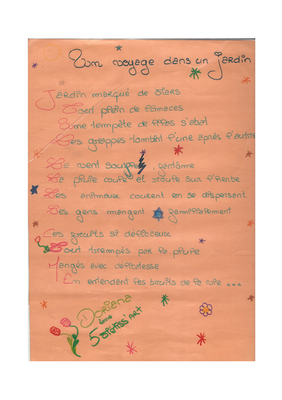 Un voyage dans un jardin
Jardin marqué de stars
Tout plein de limaces
Une tempête de s'abat
Les grappes tombent l'une après l'autre
Le vent souffle fantôme
La pluie coule et sur l'herbe
Les animaux courent en se dispersant
Des gens mangent familialement
Les fruits si délicieux
Sont trempés par la pluie
Mangés avec délicatesse
En entendant les bruits de la rue ...
Doriana
5